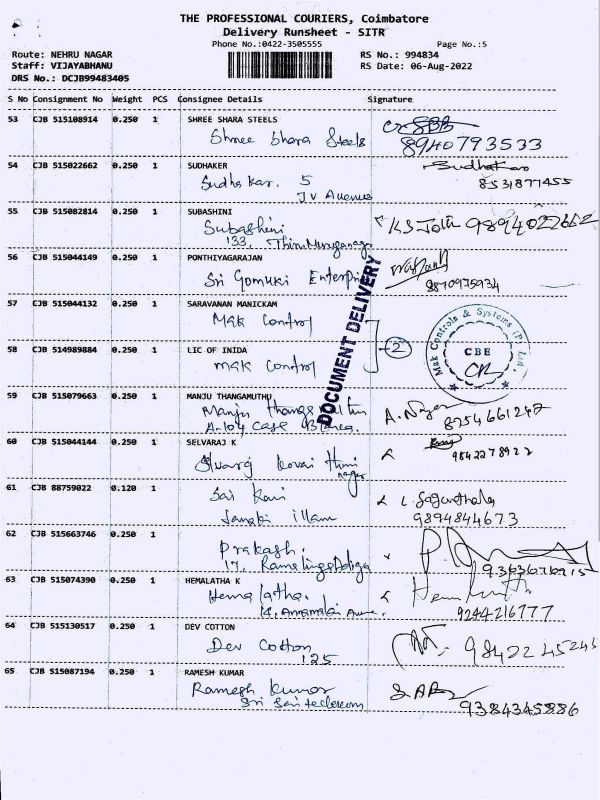 THE PROFESSIONAL COURIERS, Coimbatore
Delivery Runsheet - SITR
Phone No.:0422-3505555 Page No.:5
Route: NEHRU NAGAR RS No.: 994834
Staff: VIJAYABHANU RS Date: 06-Aug-2022
DRS No.: DCJB99483405
S No Consignment No Weight PCS Consignee Details Signature
53 CJB 515108914 0.250 1 SHREE SHARA STEELS
Shree Shara Steels 8940793533
54 CJB 515022662 0.250 1 SUDHAKER Sudhakar
Sudhakar. 5 8531877455
JV Avenue
55 CJB 515082814 0.250 1 SUBASHINI
Subashini 9894022662
133,
56 CJB 515044149 0.250 1 PONTHIYAGARAJAN
Sri Gomuki
57 CJB 515044132 0.250 1 SARAVANAN MANICKAM
Mak Control
2
58 CJB 514989884 0.250 1 LIC OF INIDA
Mak Control
DOCUMENT DELIVERY
Mak Controls & Systems (P) Ltd.,
CBE
59 CJB 515079663 0.250 1 MANJU THANGAMUTHU
Manju 8754661247
A-104
60 CJB 515044144 0.250 1 SELVARAJ K
kovai thiru 9842278922
nagar
61 CJB 88759022 0.120 1
Sai
Janaki illam 9894844673
62 CJB 515663746 0.250 1
Prakash.
17,
63 CJB 515074390 0.250 1 HEMALATHA K
Hema latha. 9244216777
14, Annamalai
64 CJB 515130517 0.250 1 DEV COTTON
Dev Cotton 9842245245
125
65 CJB 515087194 0.250 1 RAMESH KUMAR
Ramesh Kumar
Sri Sai telecom 9384345886